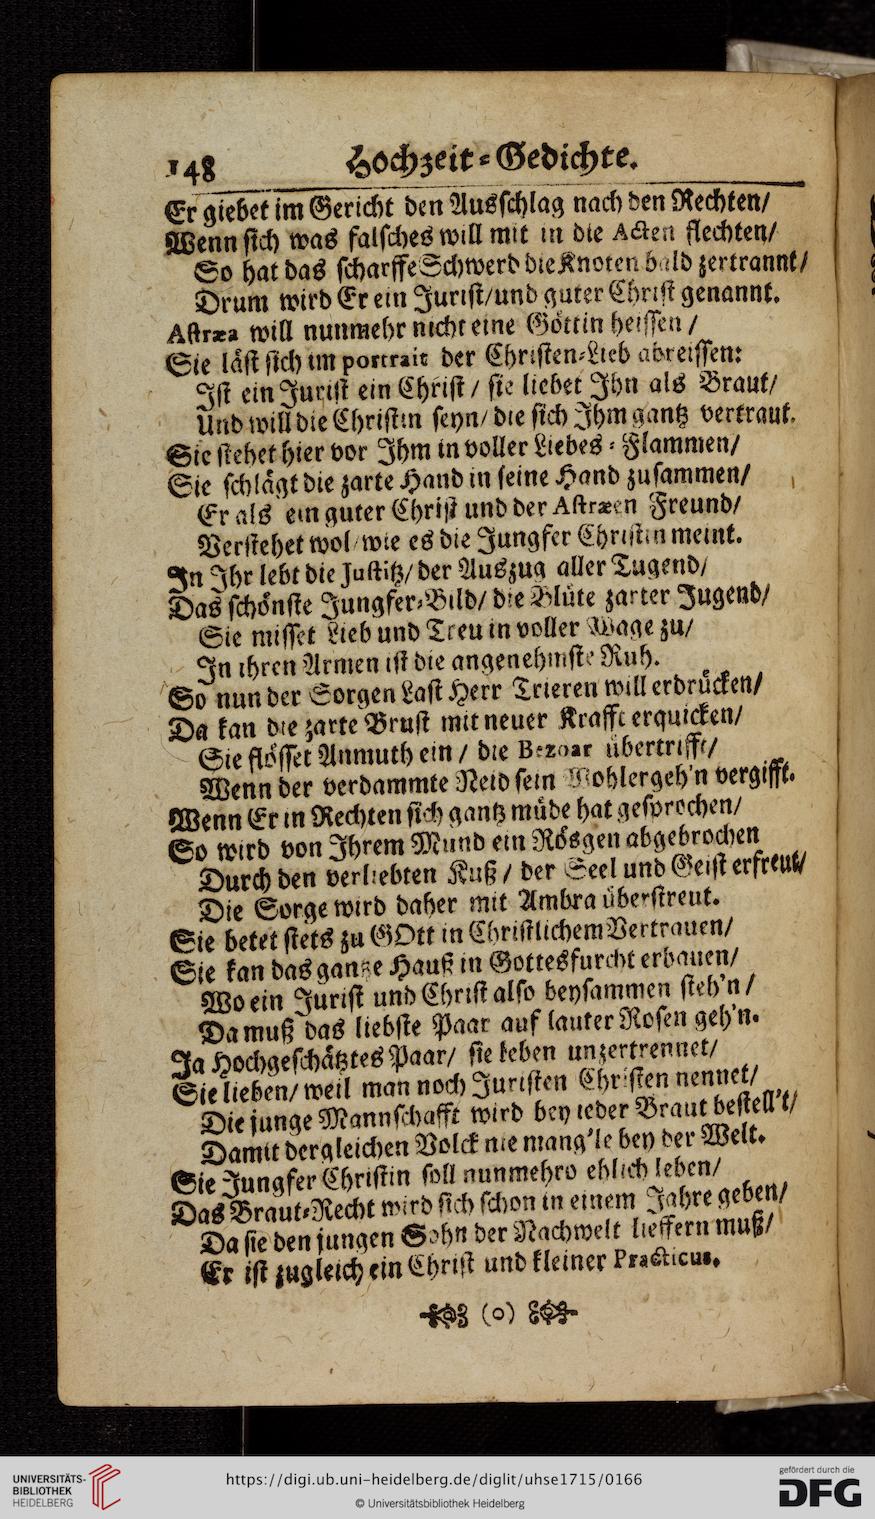 148 Hochzeit-Gedichte.
Er giebet im Gericht den Ausschlag nach den Rechten/
Wenn sich was falsches will mit in die Acten flechten/
So hat das scharffe Schwerd die Knoten bald zertrannt/
Drum wird Er ein Jurist/und guter Christ genannt.
Astræa will nunmehr nicht eine Göttin heissen /
Sie läst sich im portrait der Christen-Lieb abreissen:
Ist ein Jurist ein Christ / sie liebet Ihn als Braut/
Und will die Christin seyn/ die sich Ihm gantz vertraut.
Sie stehet hier vor Ihm in voller Liebes-Flammen/
Sie schlägt die zarte Hand in seine Hand zusammen/
Er als ein guter Christ und der Astræen Freund/
Verstehet wol/wie es die Jungfer Christin meint.
In Ihr lebt die Justitz/ der Auszug aller Tugend/
Das schönste Jungfer-Bild/ die Blüte zarter Jugend/
Sie misset Lieb und Treu in voller Wage zu/
In ihren Armen ist die angenehmste Ruh.
So nun der Sorgen Last Herr Trieren will erdrücken/
Da kan die zarte Brust mit neuer Krafft erquicken/
Sie flösset Anmuth ein / die Bezoar übertrifft/
Wenn der verdammte Neid sein Wohlergeh'n vergifft.
Wenn Er in Rechten sich gantz müde hat gesprochen/
So wird von Ihrem Mund ein Rösgen abgebrochen
Durch den verliebten Kuß / der Seel und Geist erfreut/
Die Sorge wird daher mit Ambra überstreut.
Sie betet stets zu GOtt in Christlichem Vertrauen/
Sie kan das gantze Hauß in Gottesfurcht erbauen/
Wo ein Jurist und Christ also beysammen steh'n /
Da muß das liebste Paar auf lauter Rosen geh'n.
Ja Hochgeschätztes Paar/ sie leben unzertrennet/
Sie lieben/ weil man noch Juristen Christen nennet/
Die junge Mannschafft wird bey ieder Braut bestell't/
Damit dergleichen Volck nie mang'le bey der Welt.
Sie Jungfer Christin soll nunmehro ehlich leben/
Das Braut-Recht wird sich schon in einem Jahre geben/
Da sie den jungen Sohn der Nachwelt lieffern muß/
Er ist zugleich ein Christ und kleiner Practicus.
(o)
UNIVERSITÄTS-
BIBLIOTHEK
HEIDELBERG
https://digi.ub.uni-heidelberg.de/diglit/uhse1715/0166
© Universitätsbibliothek Heidelberg
gefördert durch die
DFG